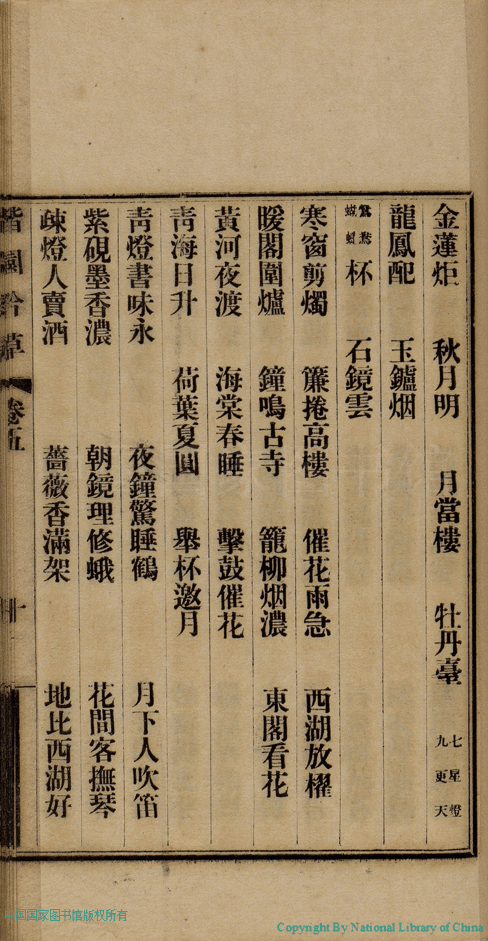 金蓮炬　秋月明　月當樓　牡丹臺　七星燈　九更天
龍鳳配　玉鑪烟
鴛愁　蛾蜆　杯　石鏡雲
寒窗剪燭　簾捲高樓　催花雨急　西湖放櫂
暖閣圍爐　鐘鳴古寺　籠柳烟濃　東閣看花
黃河夜渡　海棠春睡　擊鼓催花
靑海日升　荷葉夏圓　舉杯邀月
靑燈書味永　夜鐘驚睡鶴　月下人吹笛
紫硯墨香濃　朝鏡理修蛾　花間客撫琴
疎燈人賣酒　薔薇香滿架　地比西湖好
卷五
中国国家图书馆版权所有
Copyright By National Library of China